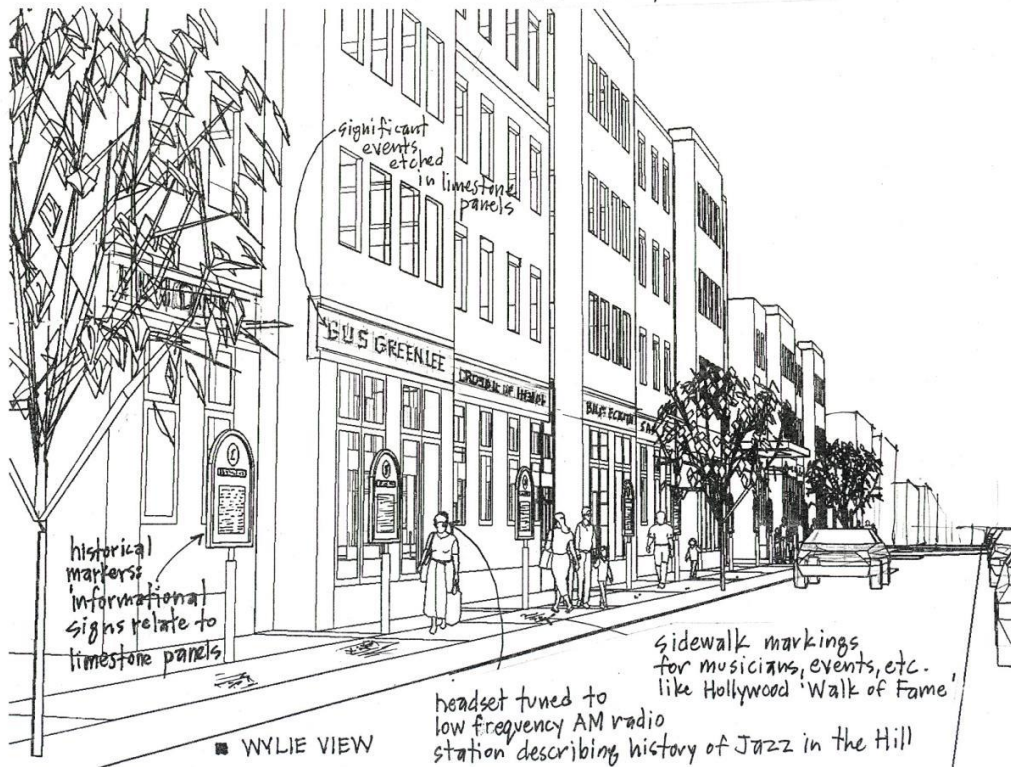 significant
events
etched
in limestone
panels
GUS GREENLEE
historical
markers:
informational
signs relate to
limestone panels
sidewalk markings
for musicians, events, etc.
like Hollywood 'Walk of Fame'
headset tuned to
low frequency AM radio
station describing history of Jazz in the Hill
WYLIE VIEW